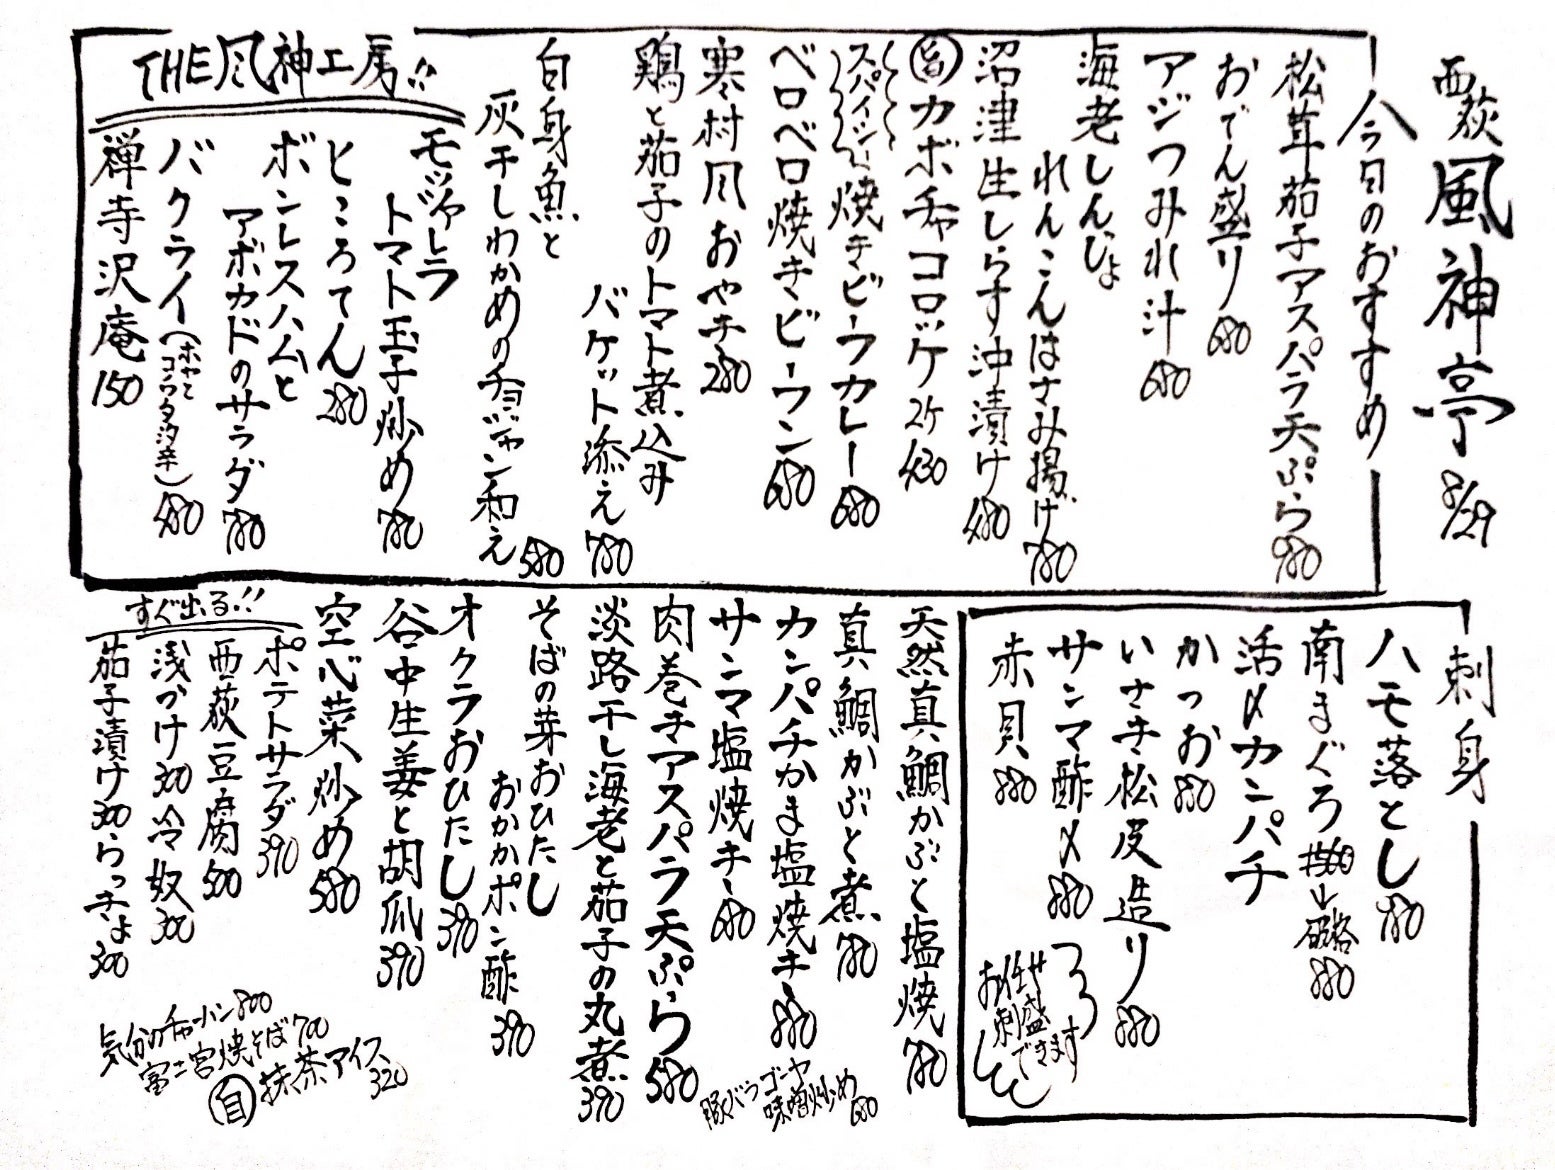 西荻 風神亭 8/29
今日のおすすめ
松茸茄子アスパラ天ぷら980
おでん盛り680
アジつみれ汁680
海老しんじょ
れんこんはさみ揚げ780
沼津生しらす沖漬け480
旨カボチャコロッケ2ケ430
スパイシー焼きビーフカレー680
ベロベロ焼きビーフン680
寒村風おやき280
鶏と茄子のトマト煮込み
バケット添え780
白身魚と
灰干しわかめのチョジャン和え580
THE風神工房!!
モッツァレラ
トマト玉子炒め780
ところてん280
ボンレスハムと
アボカドのサラダ780
バクライ(ホヤとコノワタ汐辛)480
禅寺沢庵150
刺身
ハモ落とし780
南まぐろ 880
活〆カンパチ
かつお880
いさき松皮造り880
サンマ酢〆880
赤貝880
お任せ
刺盛
できます
天然真鯛かぶと塩焼780
真鯛かぶと煮780
カンパチかま塩焼き880
サンマ塩焼き680
肉巻きアスパラ天ぷら580
淡路干し海老と茄子の丸煮390
そばの芽おひたし
おかかポン酢390
オクラおひたし390
谷中生姜と胡瓜390
空心菜炒め580
豚バラゴーヤ
味噌炒め680
すぐ出る!!
ポテトサラダ390
西荻豆腐500
浅づけ300 冷奴300
茄子漬け300 らっきょ300
気分のチャーハン800
富士宮焼そば700
自 抹茶アイス320